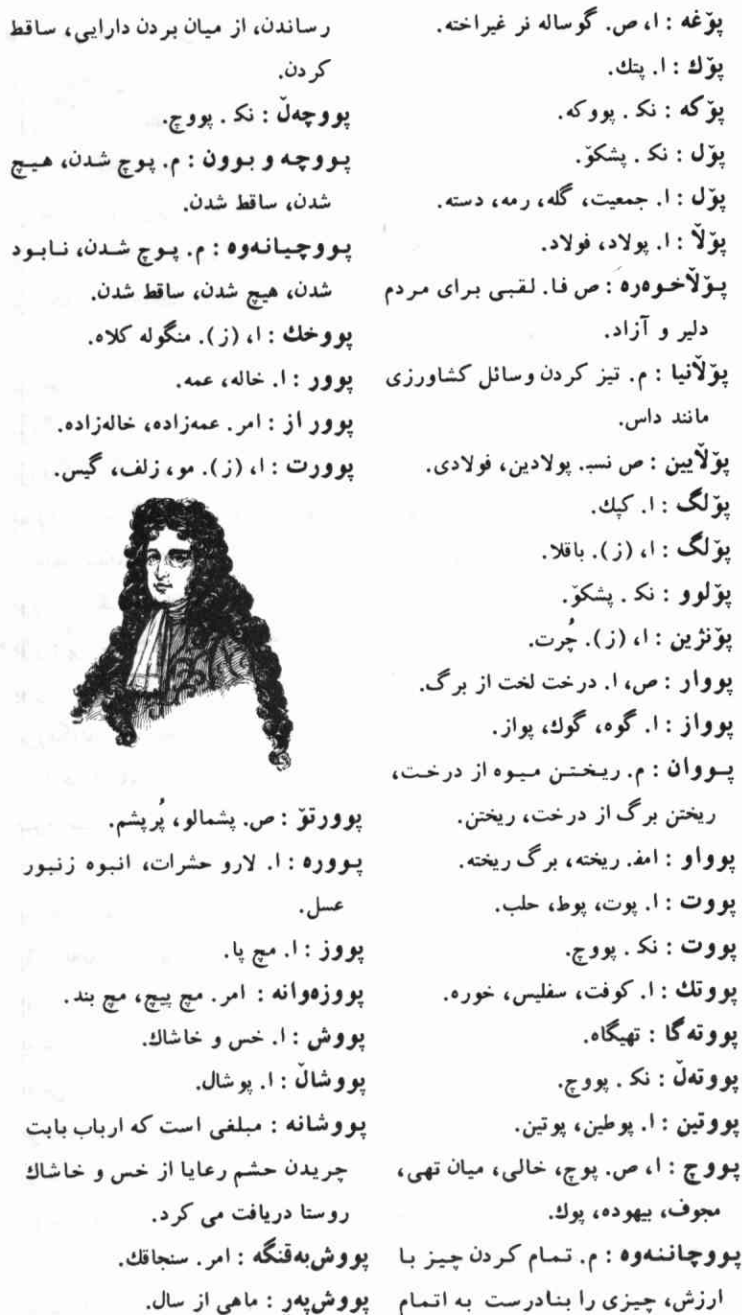 پۆغه : ا، ص. گوساله نر غیراخته.
پۆك : ا. پتك.
پۆكه : نكـ . پووكه.
پۆل : نكـ . پشكۆ.
پۆل : ا. جمعیت، گله، رمه، دسته.
پۆڵا : ا. پولاد، فولاد.
پۆڵاخوەرە : ص فا. لقبی برای مردم
دلیر و آزاد.
پۆڵانیا : م. تیز کردن وسائل کشاورزی
مانند داس.
پۆڵایین : ص نسبـ. پولادین، فولادی.
پۆلگ : ا. كپك.
پۆلگ : ا، (ز). باقلا.
پۆلوو : نكـ . پشكۆ.
پۆنژین : ا، (ز). چُرت.
پووار : ص، ا. درخت لخت از برگ.
پوواز : ا. گوه، گوك، پواز.
پووان : م. ریختن میوه از درخت،
ریختن برگ از درخت، ریختن.
پوواو : امفـ. ریخته، برگ ریخته.
پووت : ا. پوت، پوط، حلب.
پووت : نكـ . پووچ.
پووتك : ا. كوفت، سفلیس، خوره.
پووته‌گا : تهیگاه.
پووته‌ڵ : نكـ . پووچ.
پووتین : ا. پوطین، پوتین.
پووچ : ا، ص. پوچ، خالی، میان تهی،
مجوف، بیهوده، پوك.
پووچاننه‌وه : م. تمام كردن چیز با
ارزش، چیزی را بنادرست به اتمام
رساندن، از میان بردن دارایی، ساقط
كردن.
پووچه‌ڵ : نكـ . پووچ.
پووچه و بوون : م. پوچ شدن، هیچ
شدن، ساقط شدن.
پووچیانه‌وه : م. پوچ شدن، نابود
شدن، هیچ شدن، ساقط شدن.
پووخك : ا، (ز). منگوله كلاه.
پوور : ا. خاله، عمه.
پوور از : امر. عمه‌زاده، خاله‌زاده.
پوورت : ا، (ز). مو، زلف، گیس.
پوورتۆ : ص. پشمالو، پُرپشم.
پووره : ا. لارو حشرات، انبوه زنبور
عسل.
پووز : ا. مچ پا.
پووزه‌وانه : امر. مچ پیچ، مچ بند.
پووش : ا. خس و خاشاك.
پووشاڵ : ا. پوشال.
پووشانه : مبلغی است كه ارباب بابت
چریدن حشم رعایا از خس و خاشاك
روستا دریافت می كرد.
پووش‌به‌قنگه : امر. سنجاقك.
پووش‌پهر : ماهی از سال.